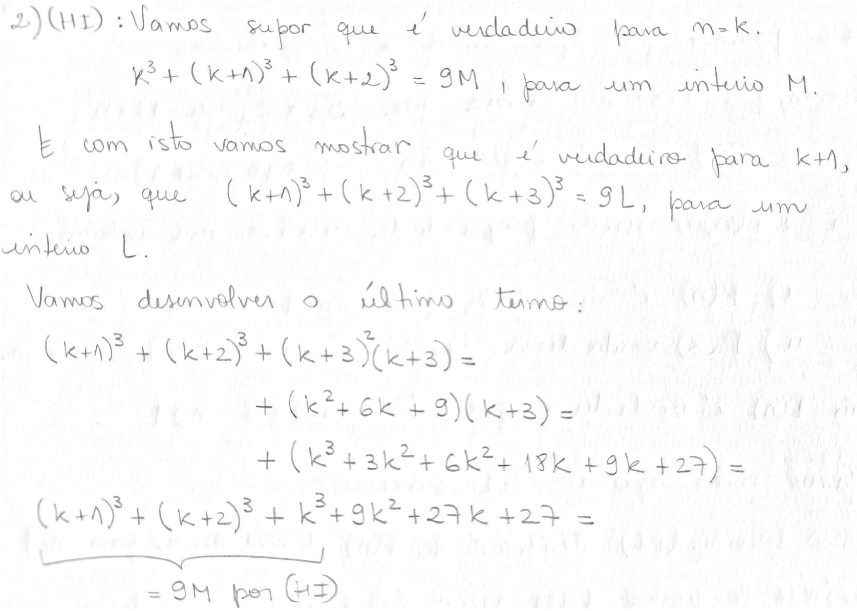 2) (HI) : Vamos supor que é verdadeiro para n=k.
k³ + (k+1)³ + (k+2)³ = 9M , para um inteiro M.
E com isto vamos mostrar que é verdadeiro para k+1,
ou seja, que (k+1)³ + (k+2)³ + (k+3)³ = 9L, para um
inteiro L.
Vamos desenvolver o último termo:
(k+1)³ + (k+2)³ + (k+3)²(k+3) =
+ (k² + 6k + 9)(k+3) =
+ (k³ + 3k² + 6k² + 18k + 9k + 27) =
(k+1)³ + (k+2)³ + k³ + 9k² + 27k + 27 =
= 9M por (HI)